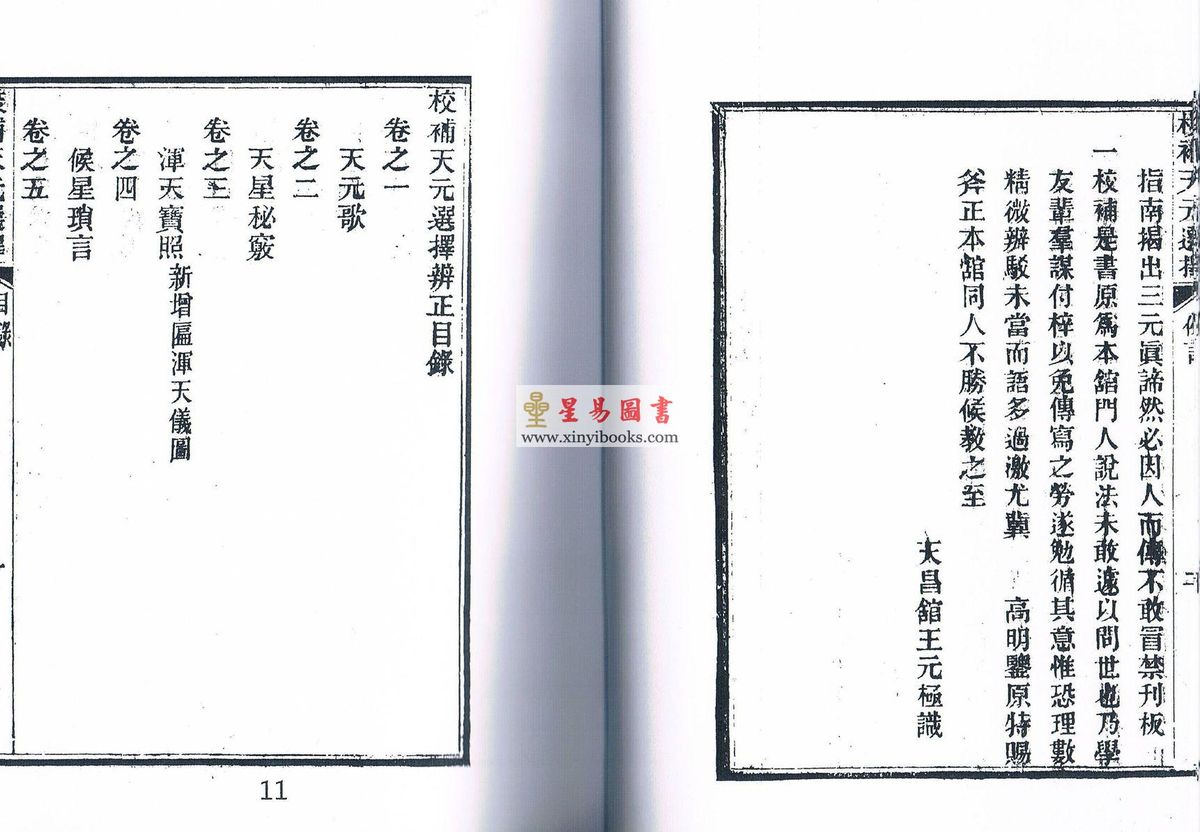 指南揭出三元眞諦然必因人而傳不敢冒禁刊板
一校補是書原爲本舘門人說法未敢遽以問世也乃學
友輩羣謀付梓以免傳寫之勞遂勉循其意惟恐理數
精微辨駁未當而語多過激尤冀 高明鑒原特賜
斧正本舘同人不勝候教之至
天昌舘王元極識
校補天元選擇辨正目錄
卷之一
天元歌
卷之二
天星秘竅
卷之三
渾天寶照 新增區渾天儀圖
卷之四
候星瑣言
卷之五
目錄
11
星易圖書
www.xinyibooks.com